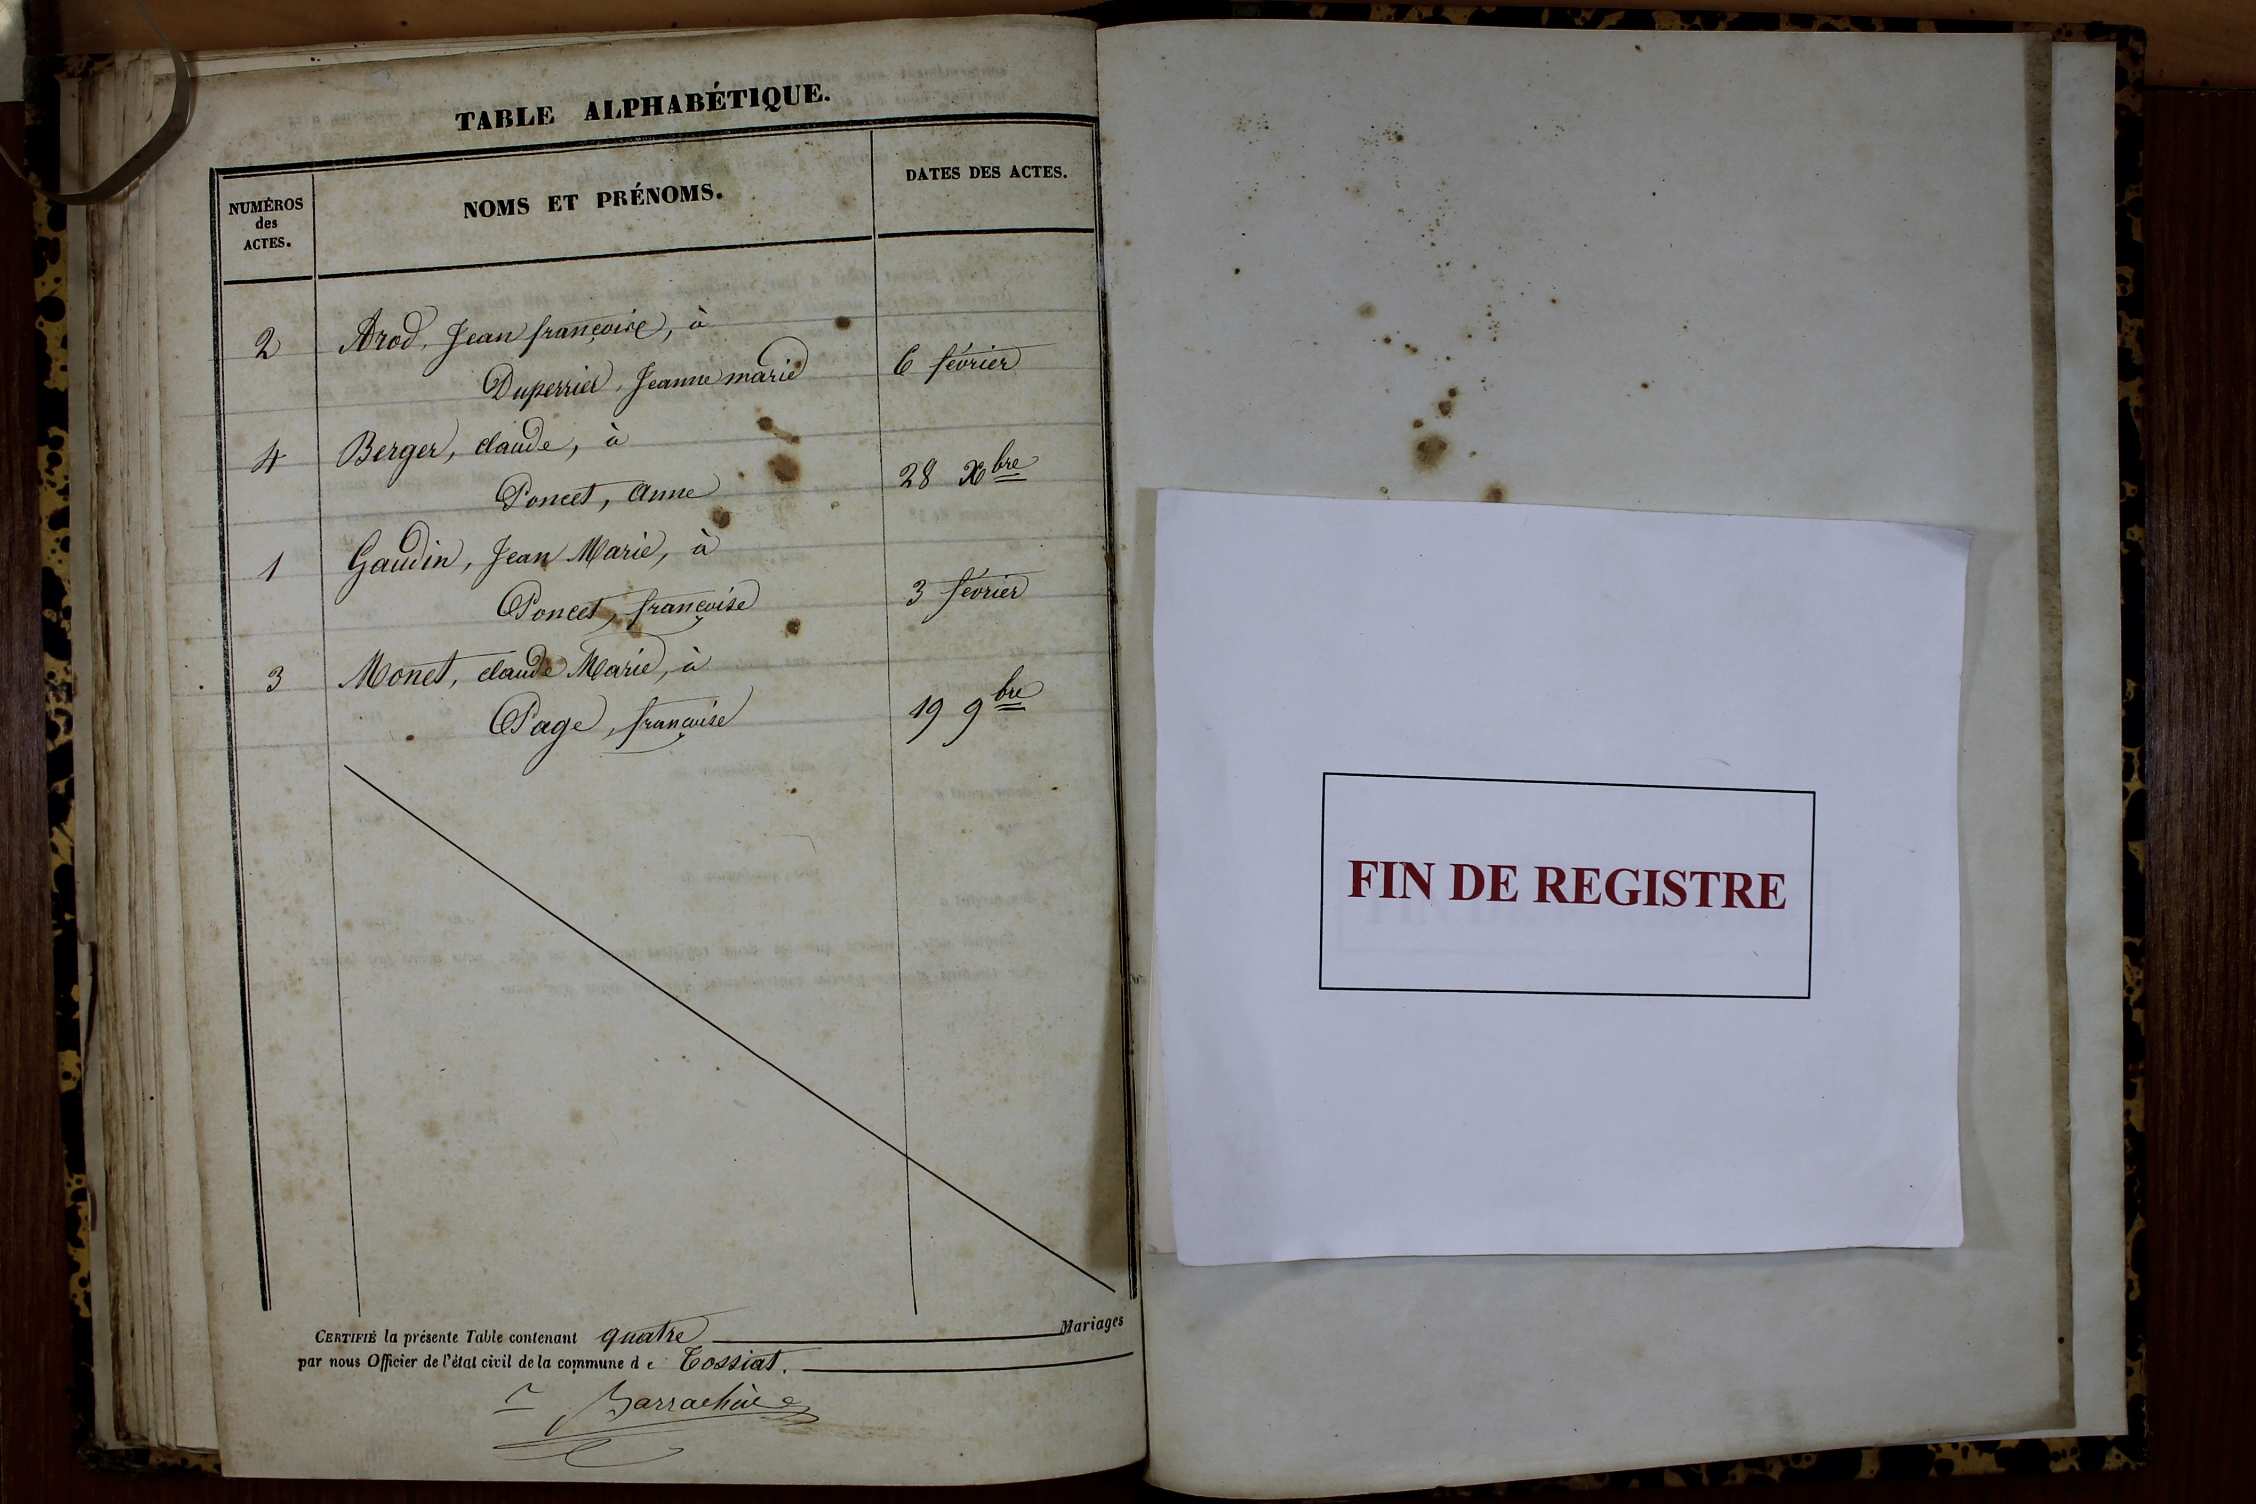 TABLE ALPHABÉTIQUE.
NUMÉROS
des
ACTES.
NOMS ET PRÉNOMS.
DATES DES ACTES.
2 Arod, Jean françoise, à
Duperrier, Jeanne marie 6 février
4 Berger, claude, à
Poncet, anne 28 Xbre
1 Gaudin, Jean Marie, à
Poncet, françoise 3 février
3 Monet, claude Marie, à
Page, françoise 19 9bre
CERTIFIÉ la présente Table contenant quatre Mariages
par nous Officier de l'état civil de la commune de Tossiat.
FIN DE REGISTRE